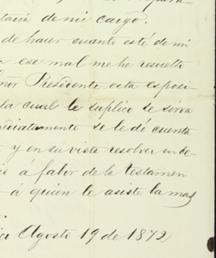 taria de mi cargo.
de hacer cuanto esté de mi
ese mal me he resuelto
Presidente esta esposi
la cual le suplico se sirva
diatamente se le dé cuenta
y en su vista resolver en te
á fabor de la testamen
á quien le asiste la mas
Agosto 19 de 1872